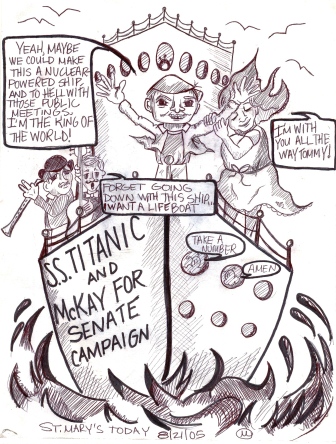 YEAH, MAYBE
WE COULD MAKE
THIS A NUCLEAR-
POWERED SHIP,
AND TO HELL WITH
THOSE PUBLIC
MEETINGS.
I'M THE KING OF
THE WORLD!
I'M WITH
YOU ALL THE
WAY TOMMY!
FORGET GOING
DOWN WITH THIS SHIP...
I WANT A LIFEBOAT
S.S. TITANIC
AND
McKAY FOR
SENATE
CAMPAIGN
TAKE A
NUMBER
AMEN
ST. MARY'S TODAY 8/21/05